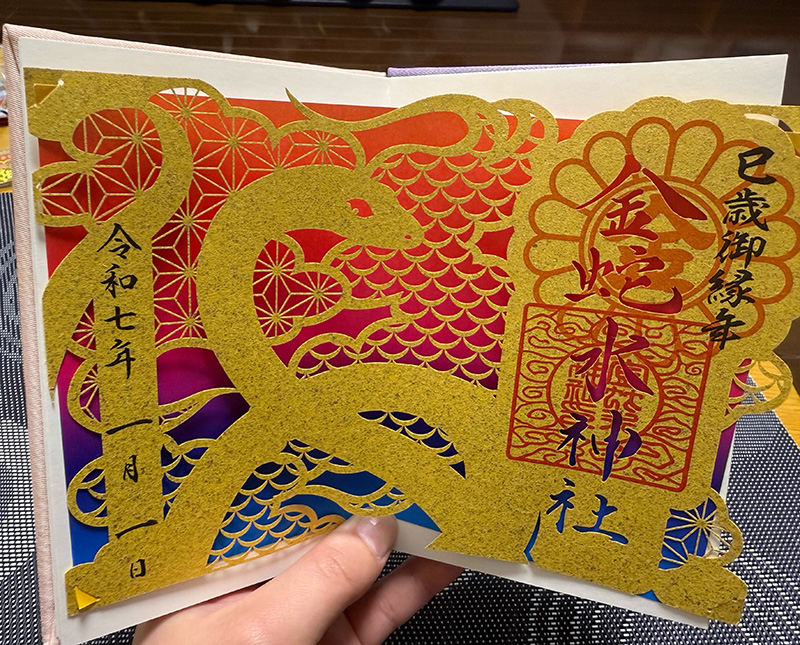 巳歳御縁年
金蛇水神社
令和七年 一月 一日